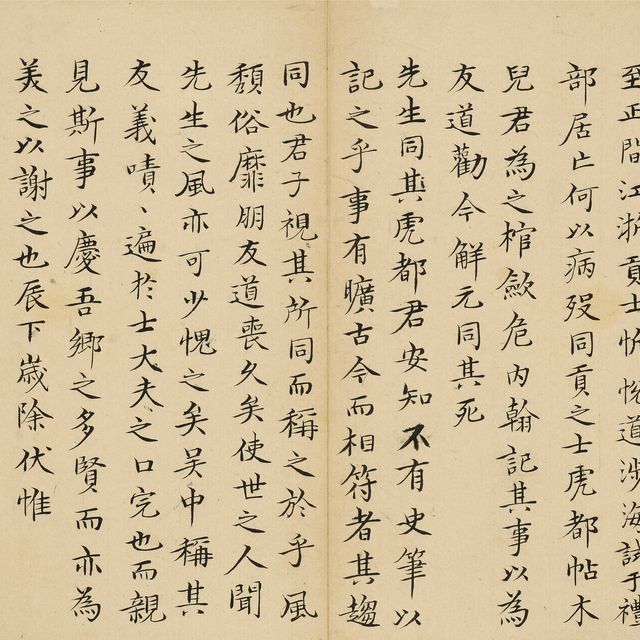 至正間江浙貢士忻悅道涉海試于禮
部居亡何以病歿同貢之士虎都帖木
兒君為之棺歛危内翰記其事以為
友道勸今解元同其死
先生同其虎都君安知不有史筆以
記之乎事有曠古今而相符者其趨
同也君子視其所同而稱之於乎風
頹俗靡朋友道喪久矣使世之人聞
先生之風亦可少愧之矣吴中稱其
友義嘖〻遍於士大夫之口完也而親
見斯事以慶吾鄉之多賢而亦為
美之以謝之也辰下歲除伏惟